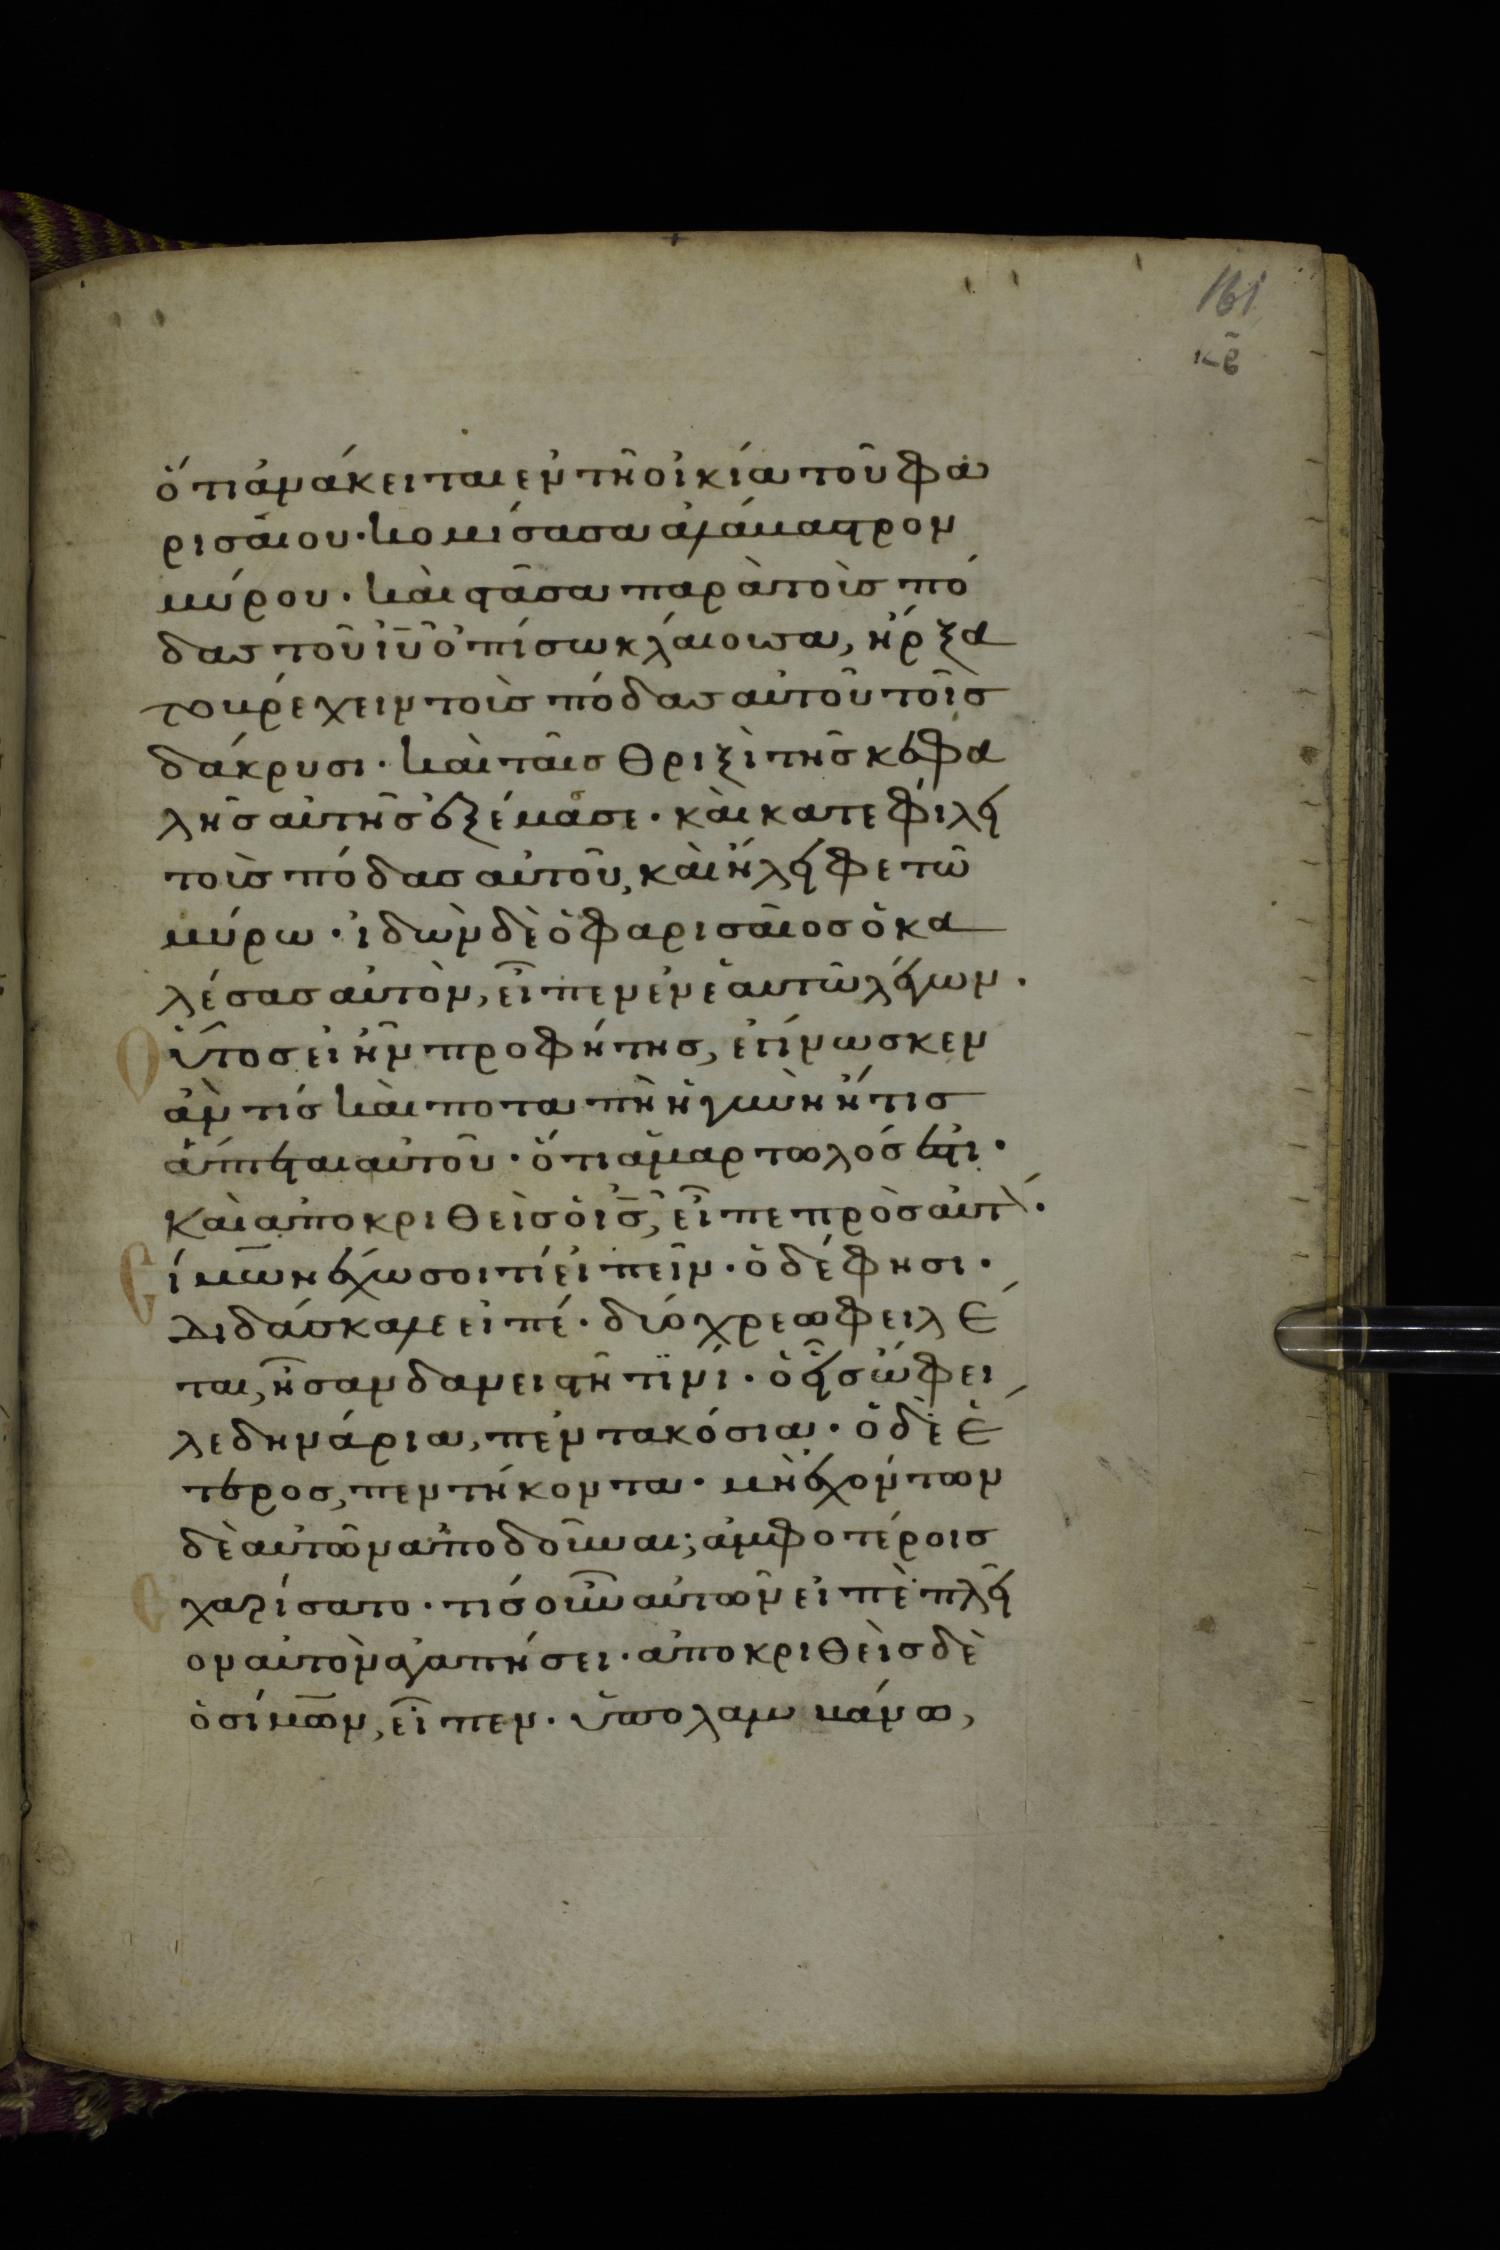 161
κβ
ὅτι ἀνάκειται ἐν τῆ οἰκία τοῦ φα
ρισαίου· κομίσασα ἀλάβαστρον
μύρου· καὶ στᾶσα παρὰ τοὺσ πό
δασ τοῦ ἰῦ ὀπίσω κλαίουσα, ἤρξα
το βρέχειν τοὺσ πόδασ αὐτοῦ τοῖσ
δάκρυσι· καὶ ταῖσ θριξὶ τῆσ κεφα
λῆσ αὐτῆσ ἐξέμασσε· καὶ κατεφίλει
τοὺσ πόδασ αὐτοῦ, καὶ ἤλειφε τῶ
μύρω· ἰδὼν δὲ ὁ φαρισαῖοσ ὁ κα
λέσασ αὐτὸν, εἶπεν ἐν ἑαυτῶ λέγων·
Οὗτοσ εἰ ἦν προφήτησ, ἐγίνωσκεν
ἂν τίσ καὶ ποταπὴ ἡ γυνὴ ἥτισ
ἅπτεται αὐτοῦ· ὅτι ἁμαρτωλόσ ἐστι·
Καὶ ἀποκριθεὶσ ὁ ἰσ, εἶπε πρὸσ αὐτὸν·
Σίμων ἔχω σοι τί εἰπεῖν· ὁ δέ φησι·
Διδάσκαλε εἰπέ· δύο χρεωφειλέ
ται, ἦσαν δανειστῆ τϊνί· ὁ εἷσ ὤφει
λε δηνάρια, πεντακόσια· ὁ δὲ ἕ
τεροσ, πεντήκοντα· μὴ ἐχόντων
δὲ αὐτῶν ἀποδοῦναι; ἀμφοτέροισ
Ἐχαρίσατο· τίσ οὖν αὐτῶν εἰπὲ πλεῖ
ον αὐτὸν ἀγαπήσει· ἀποκριθεὶσ δὲ
ὁ σίμων, εἶπεν· ὑπολαμβάνω,